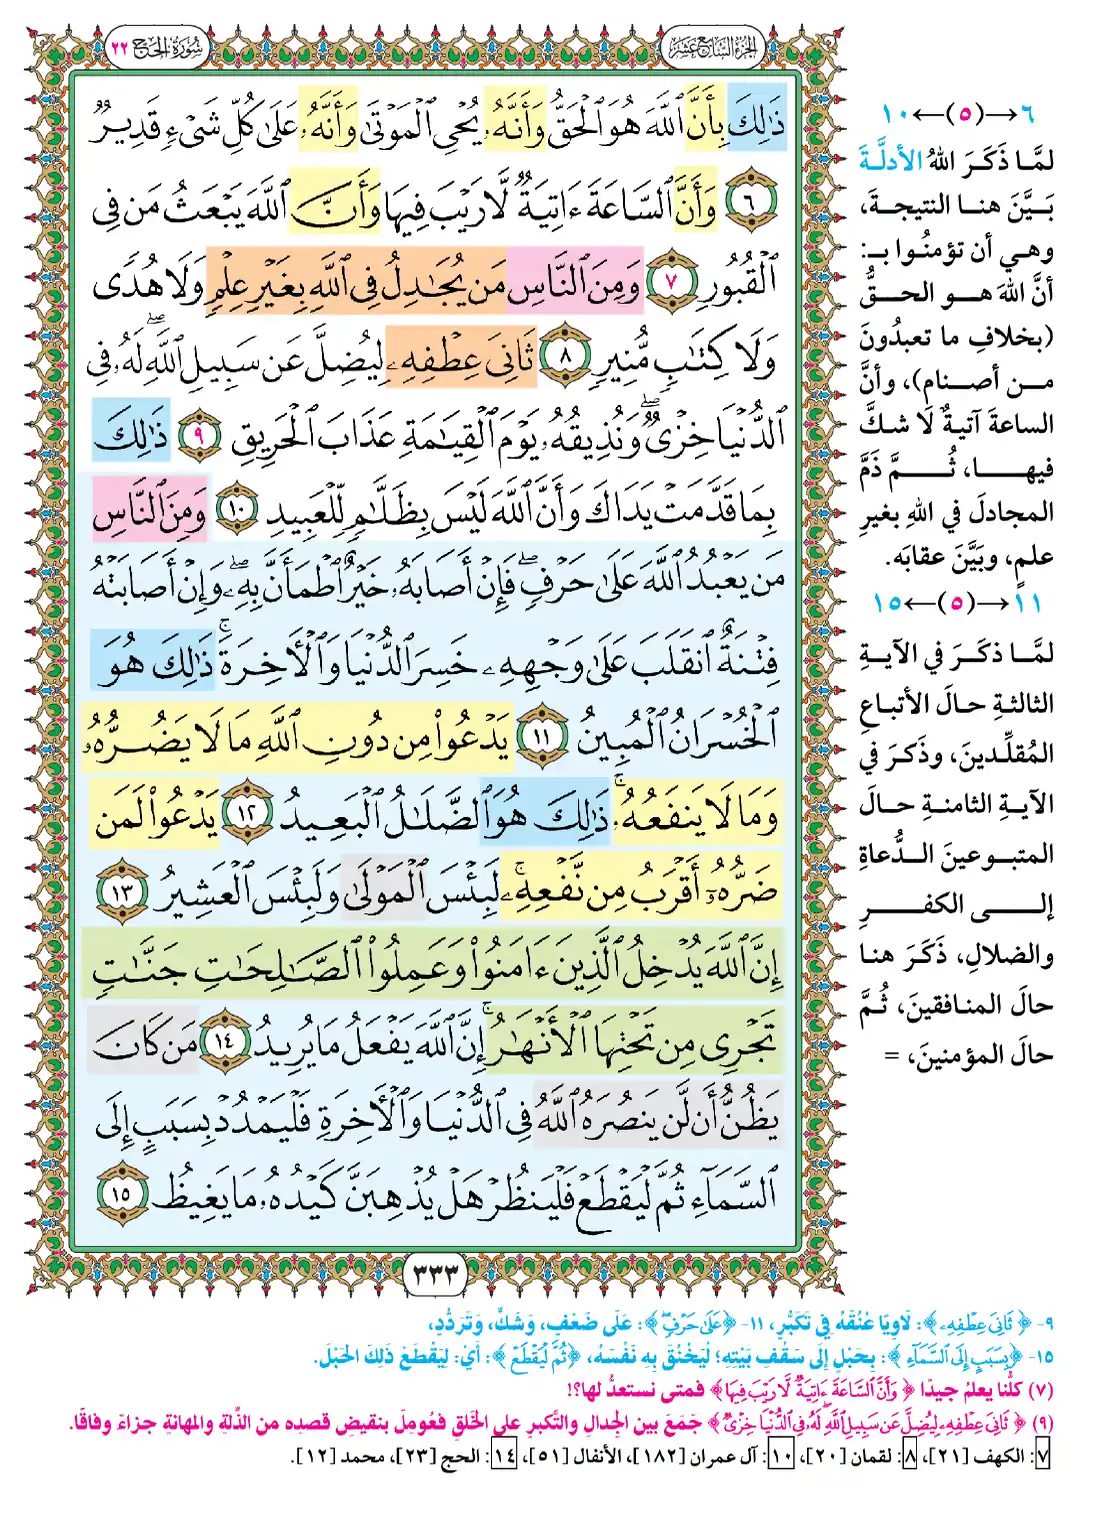 الجزء السابع عشر
سورة الحج ٢٢
ذَٰلِكَ بِأَنَّ ٱللَّهَ هُوَ ٱلْحَقُّ وَأَنَّهُۥ يُحْىِ ٱلْمَوْتَىٰ وَأَنَّهُۥ عَلَىٰ كُلِّ شَىْءٍ قَدِيرٌ
٦ وَأَنَّ ٱلسَّاعَةَ ءَاتِيَةٌ لَّا رَيْبَ فِيهَا وَأَنَّ ٱللَّهَ يَبْعَثُ مَن فِى
ٱلْقُبُورِ ٧ وَمِنَ ٱلنَّاسِ مَن يُجَٰدِلُ فِى ٱللَّهِ بِغَيْرِ عِلْمٍ وَلَا هُدًى
وَلَا كِتَٰبٍ مُّنِيرٍ ٨ ثَانِىَ عِطْفِهِۦ لِيُضِلَّ عَن سَبِيلِ ٱللَّهِ ۖ لَهُۥ فِى
ٱلدُّنْيَا خِزْىٌ ۖ وَنُذِيقُهُۥ يَوْمَ ٱلْقِيَٰمَةِ عَذَابَ ٱلْحَرِيقِ ٩ ذَٰلِكَ
بِمَا قَدَّمَتْ يَدَاكَ وَأَنَّ ٱللَّهَ لَيْسَ بِظَلَّٰمٍ لِّلْعَبِيدِ ١٠ وَمِنَ ٱلنَّاسِ
مَن يَعْبُدُ ٱللَّهَ عَلَىٰ حَرْفٍ ۖ فَإِنْ أَصَابَهُۥ خَيْرٌ ٱطْمَأَنَّ بِهِۦ ۖ وَإِنْ أَصَابَتْهُ
فِتْنَةٌ ٱنقَلَبَ عَلَىٰ وَجْهِهِۦ خَسِرَ ٱلدُّنْيَا وَٱلْءَاخِرَةَ ۚ ذَٰلِكَ هُوَ
ٱلْخُسْرَانُ ٱلْمُبِينُ ١١ يَدْعُوا۟ مِن دُونِ ٱللَّهِ مَا لَا يَضُرُّهُۥ
وَمَا لَا يَنفَعُهُۥ ۚ ذَٰلِكَ هُوَ ٱلضَّلَٰلُ ٱلْبَعِيدُ ١٢ يَدْعُوا۟ لَمَن
ضَرُّهُۥٓ أَقْرَبُ مِن نَّفْعِهِۦ ۚ لَبِئْسَ ٱلْمَوْلَىٰ وَلَبِئْسَ ٱلْعَشِيرُ ١٣
إِنَّ ٱللَّهَ يُدْخِلُ ٱلَّذِينَ ءَامَنُوا۟ وَعَمِلُوا۟ ٱلصَّٰلِحَٰتِ جَنَّٰتٍ
تَجْرِى مِن تَحْتِهَا ٱلْأَنْهَٰرُ ۚ إِنَّ ٱللَّهَ يَفْعَلُ مَا يُرِيدُ ١٤ مَن كَانَ
يَظُنُّ أَن لَّن يَنصُرَهُ ٱللَّهُ فِى ٱلدُّنْيَا وَٱلْءَاخِرَةِ فَلْيَمْدُدْ بِسَبَبٍ إِلَى
ٱلسَّمَآءِ ثُمَّ لْيَقْطَعْ فَلْيَنظُرْ هَلْ يُذْهِبَنَّ كَيْدُهُۥ مَا يَغِيظُ ١٥
٣٣٣
٦→(٥)←١٠
لمَّا ذَكَرَ اللهُ الأدلَّةَ
بَيَّنَ هنا النتيجةَ،
وهي أن تؤمنُوا بـ:
أنَّ اللهَ هو الحقُّ
(بخلافِ ما تعبدُونَ
من أصنام)، وأنَّ
الساعةَ آتيةٌ لَا شكَّ
فيها، ثُمَّ ذَمَّ
المجادلَ في اللهِ بغيرِ
علمٍ، وبَيَّنَ عقابَه.
١١→(٥)←١٥
لمَّا ذكَرَ في الآيةِ
الثالثةِ حالَ الأتباعِ
المُقلِّدينَ، وذَكرَ في
الآيةِ الثامنةِ حالَ
المتبوعينَ الدُّعاةِ
إلى الكفرِ
والضلالِ، ذَكَرَ هنا
حالَ المنافقينَ، ثُمَّ
حالَ المؤمنينَ، =
٩- ﴿ثَانِىَ عِطْفِهِۦ﴾: لَاوِيًا عُنُقَهُ فِي تَكَبُّرٍ، ١١- ﴿عَلَىٰ حَرْفٍ ۖ﴾: عَلَى ضَعْفٍ، وَشَكٍّ، وَتَرَدُّدٍ،
١٥- ﴿بِسَبَبٍ إِلَى ٱلسَّمَآءِ﴾: بِحَبْلٍ إِلَى سَقْفِ بَيْتِهِ؛ لِيَخْنُقَ بِهِ نَفْسَهُ، ﴿ثُمَّ لْيَقْطَعْ﴾: أَيْ: لِيَقْطَعْ ذَلِكَ الحَبْلَ.
(٧) كلُّنا يعلمُ جيدًا ﴿وَأَنَّ ٱلسَّاعَةَ ءَاتِيَةٌ لَّا رَيْبَ فِيهَا﴾ فمتى نستعدُّ لها؟!
(٩) ﴿ثَانِىَ عِطْفِهِۦ لِيُضِلَّ عَن سَبِيلِ ٱللَّهِ ۖ لَهُۥ فِى ٱلدُّنْيَا خِزْىٌ ۖ﴾ جَمَعَ بين الجِدالِ والتَّكبرِ على الخَلقِ فعُومِلَ بنقيضِ قصدِه من الذِّلةِ والمهانةِ جزاءً وفاقًا.
٧: الكهف [٢١]، ٨: لقمان [٢٠]، ١٠: آل عمران [١٨٢]، الأنفال [٥١]، ١٤: الحج [٢٣]، محمد [١٢].